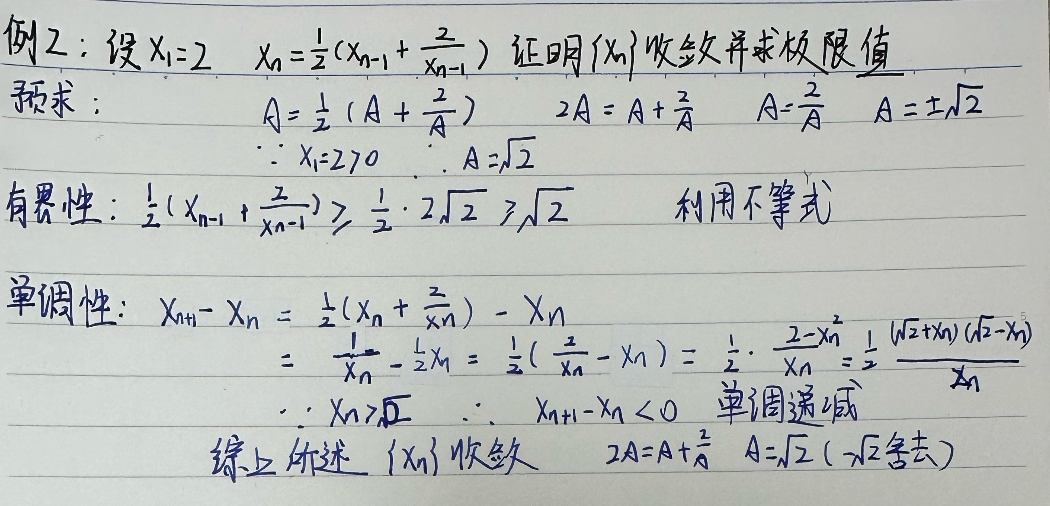 例2：设 x₁=2 xₙ=½(xₙ₋₁+2/xₙ₋₁) 证明{xₙ}收敛并求极限值
预求： A=½(A+2/A) 2A=A+2/A A=2/A A=±√2
∵ x₁=2>0 ∴ A=√2
有界性：½(xₙ₋₁+2/xₙ₋₁)≥½·2√2≥√2 利用不等式
单调性：xₙ₊₁-xₙ=½(xₙ+2/xₙ)-xₙ
=1/xₙ-½xₙ=½(2/xₙ-xₙ)=½·(2-xₙ²)/xₙ=½(√2+xₙ)(√2-xₙ)/xₙ
∵ xₙ>√2 ∴ xₙ₊₁-xₙ<0 单调递减
综上所述 {xₙ}收敛 2A=A+2/A A=√2(-√2舍去)